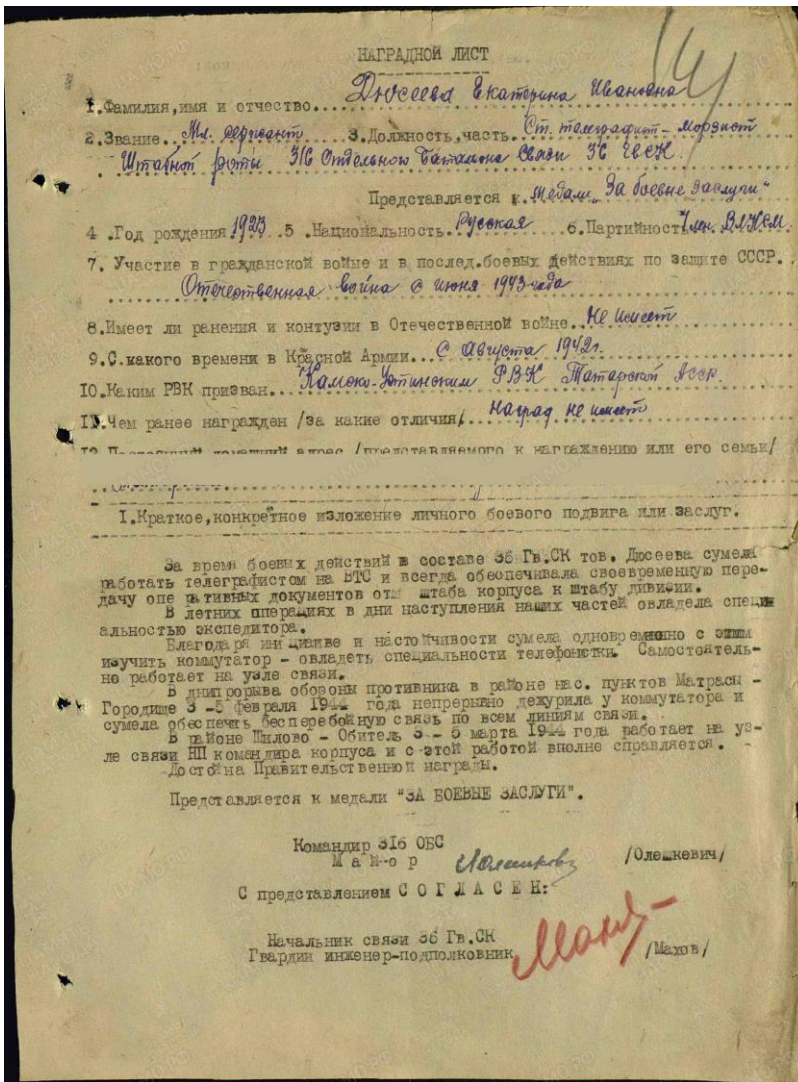 НАГРАДНОЙ ЛИСТ
1.Фамилия,имя и отчество...Дюсеева Екатерина Ивановна
2.Звание..Мл. сержант 3.Должность,часть.Ст. телеграфист-морзист
Штабной роты 316 Отдельного Баталиона Связи 36 ГвСК.
Представляется к.медали „За боевые заслуги“
4 .Год рождения 1923 .5 .Национальность.Русская 6.Партийность Член. ВЛКСМ.
7. Участие в гражданской войне и в послед.боевых действиях по защите СССР.
Отечественная война с июня 1943 года
8.Имеет ли ранения и контузии в Отечественной войне..Не имеет
9.С.какого времени в Красной Армии...С Августа 1942г.
10.Каким РВК призван...Камско-Устинским РВК Татарской АССР.
11.Чем ранее награжден /за какие отличия/.наград не имеет
12.Постоянный домашний адрес /представляемого к награждению или его семьи/
I.Краткое,конкретное изложение личного боевого подвига или заслуг.
За время боевых действий в составе 36 Гв.СК тов. Дюсеева сумела
работать телеграфистом на БТС и всегда обеспечивала своевременную пере-
дачу опе ративных документов от штаба корпуса к штабу дивизии.
В летних операциях в дни наступления наших частей овладела специ
альностью экспедитора.
Благодаря инициаиве и настойчивости сумела одновременно с этим
изучить коммутатор - овладеть специальности телефонстки. Самостоятель-
но работает на узле связи.
В днипрорыва обороны противника в районе нас. пунктов Матрасы -
Городище 3 -5 февраля 1944 года непрерывно дежурила у коммутатора и
сумела обеспечть бесперебойную связь по всем линиям связи.
В районе Шилово - Обитель 3 - 5 марта 1944 года работает на уз-
ле связи НП командира корпуса и с этой работой вполне справляется.
Достойна Правительственной награды.
Представляется к медали "ЗА БОЕВЫЕ ЗАСЛУГИ".
Командир 316 ОБС
М а й о р /Олешкевич/
С представлением С О Г Л А С Е Н:
Начальник связи 36 Гв.СК
Гвардии инженер-подполковник /Махов/